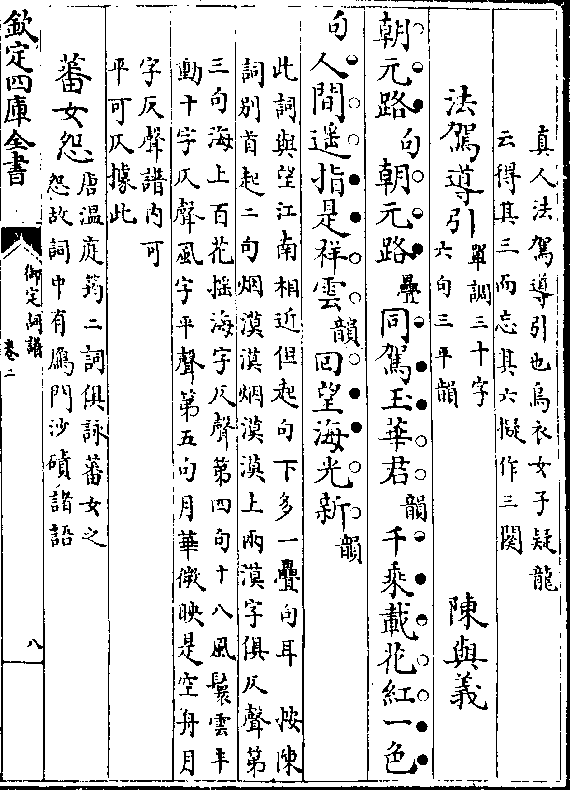 真人法駕導引也烏衣女子疑龍
云得其三而忘其六擬作三闋
法駕導引 單調三十字 陳與義
六句三平韻
朝元路句朝元路疊同駕玉華君韻千乘載花紅一色
句人間遥指是祥雲韻回望海光新韻
此詞與望江南相近但起句下多一疊句耳 按陳
詞别首起二句烟漠漠烟漠漠上兩漠字俱仄聲第
三句海上百花揺海字仄聲第四句十八風鬟雲半
動十字仄聲風字平聲第五句月華微映是空舟月
字仄聲譜内可
平可仄據此
蕃女怨 唐温庭筠二詞俱詠蕃女之
怨故詞中有鴈門沙磧諸語
欽定四庫全書
御定詞譜
卷二
八